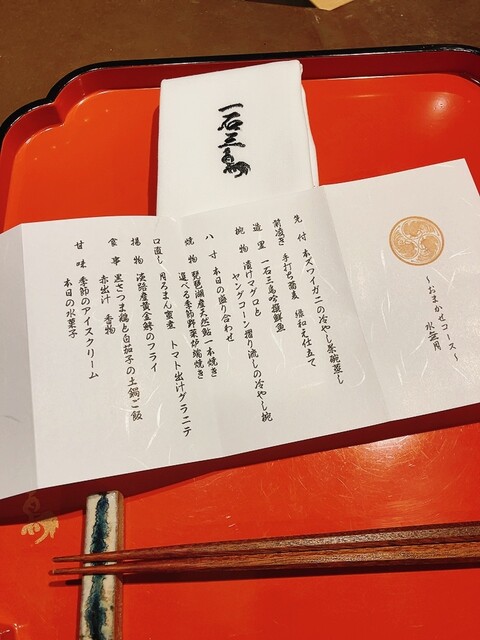 一石三鳥
～おまかせコース～
水無月
先付 本ズワイガニの冷やし茶碗蒸し
前凌ぎ 手打ち蕎麦 緑和え仕立て
造里 一石三鳥吟撰鮮魚
椀物 漬けマグロと
ヤングコーン摺り流しの冷やし椀
八寸 本日の盛り合わせ
焼物 琵琶湖産天然鮎一本焼き
選べる季節野菜炉端焼き
口直し 月ろまん蜜煮 トマト出汁グラニテ
揚物 淡路産黄金鱧のフライ
食事 黒さつま鶏と白茄子の土鍋ご飯
赤出汁 香物
甘味 季節のアイスクリーム
本日の水菓子